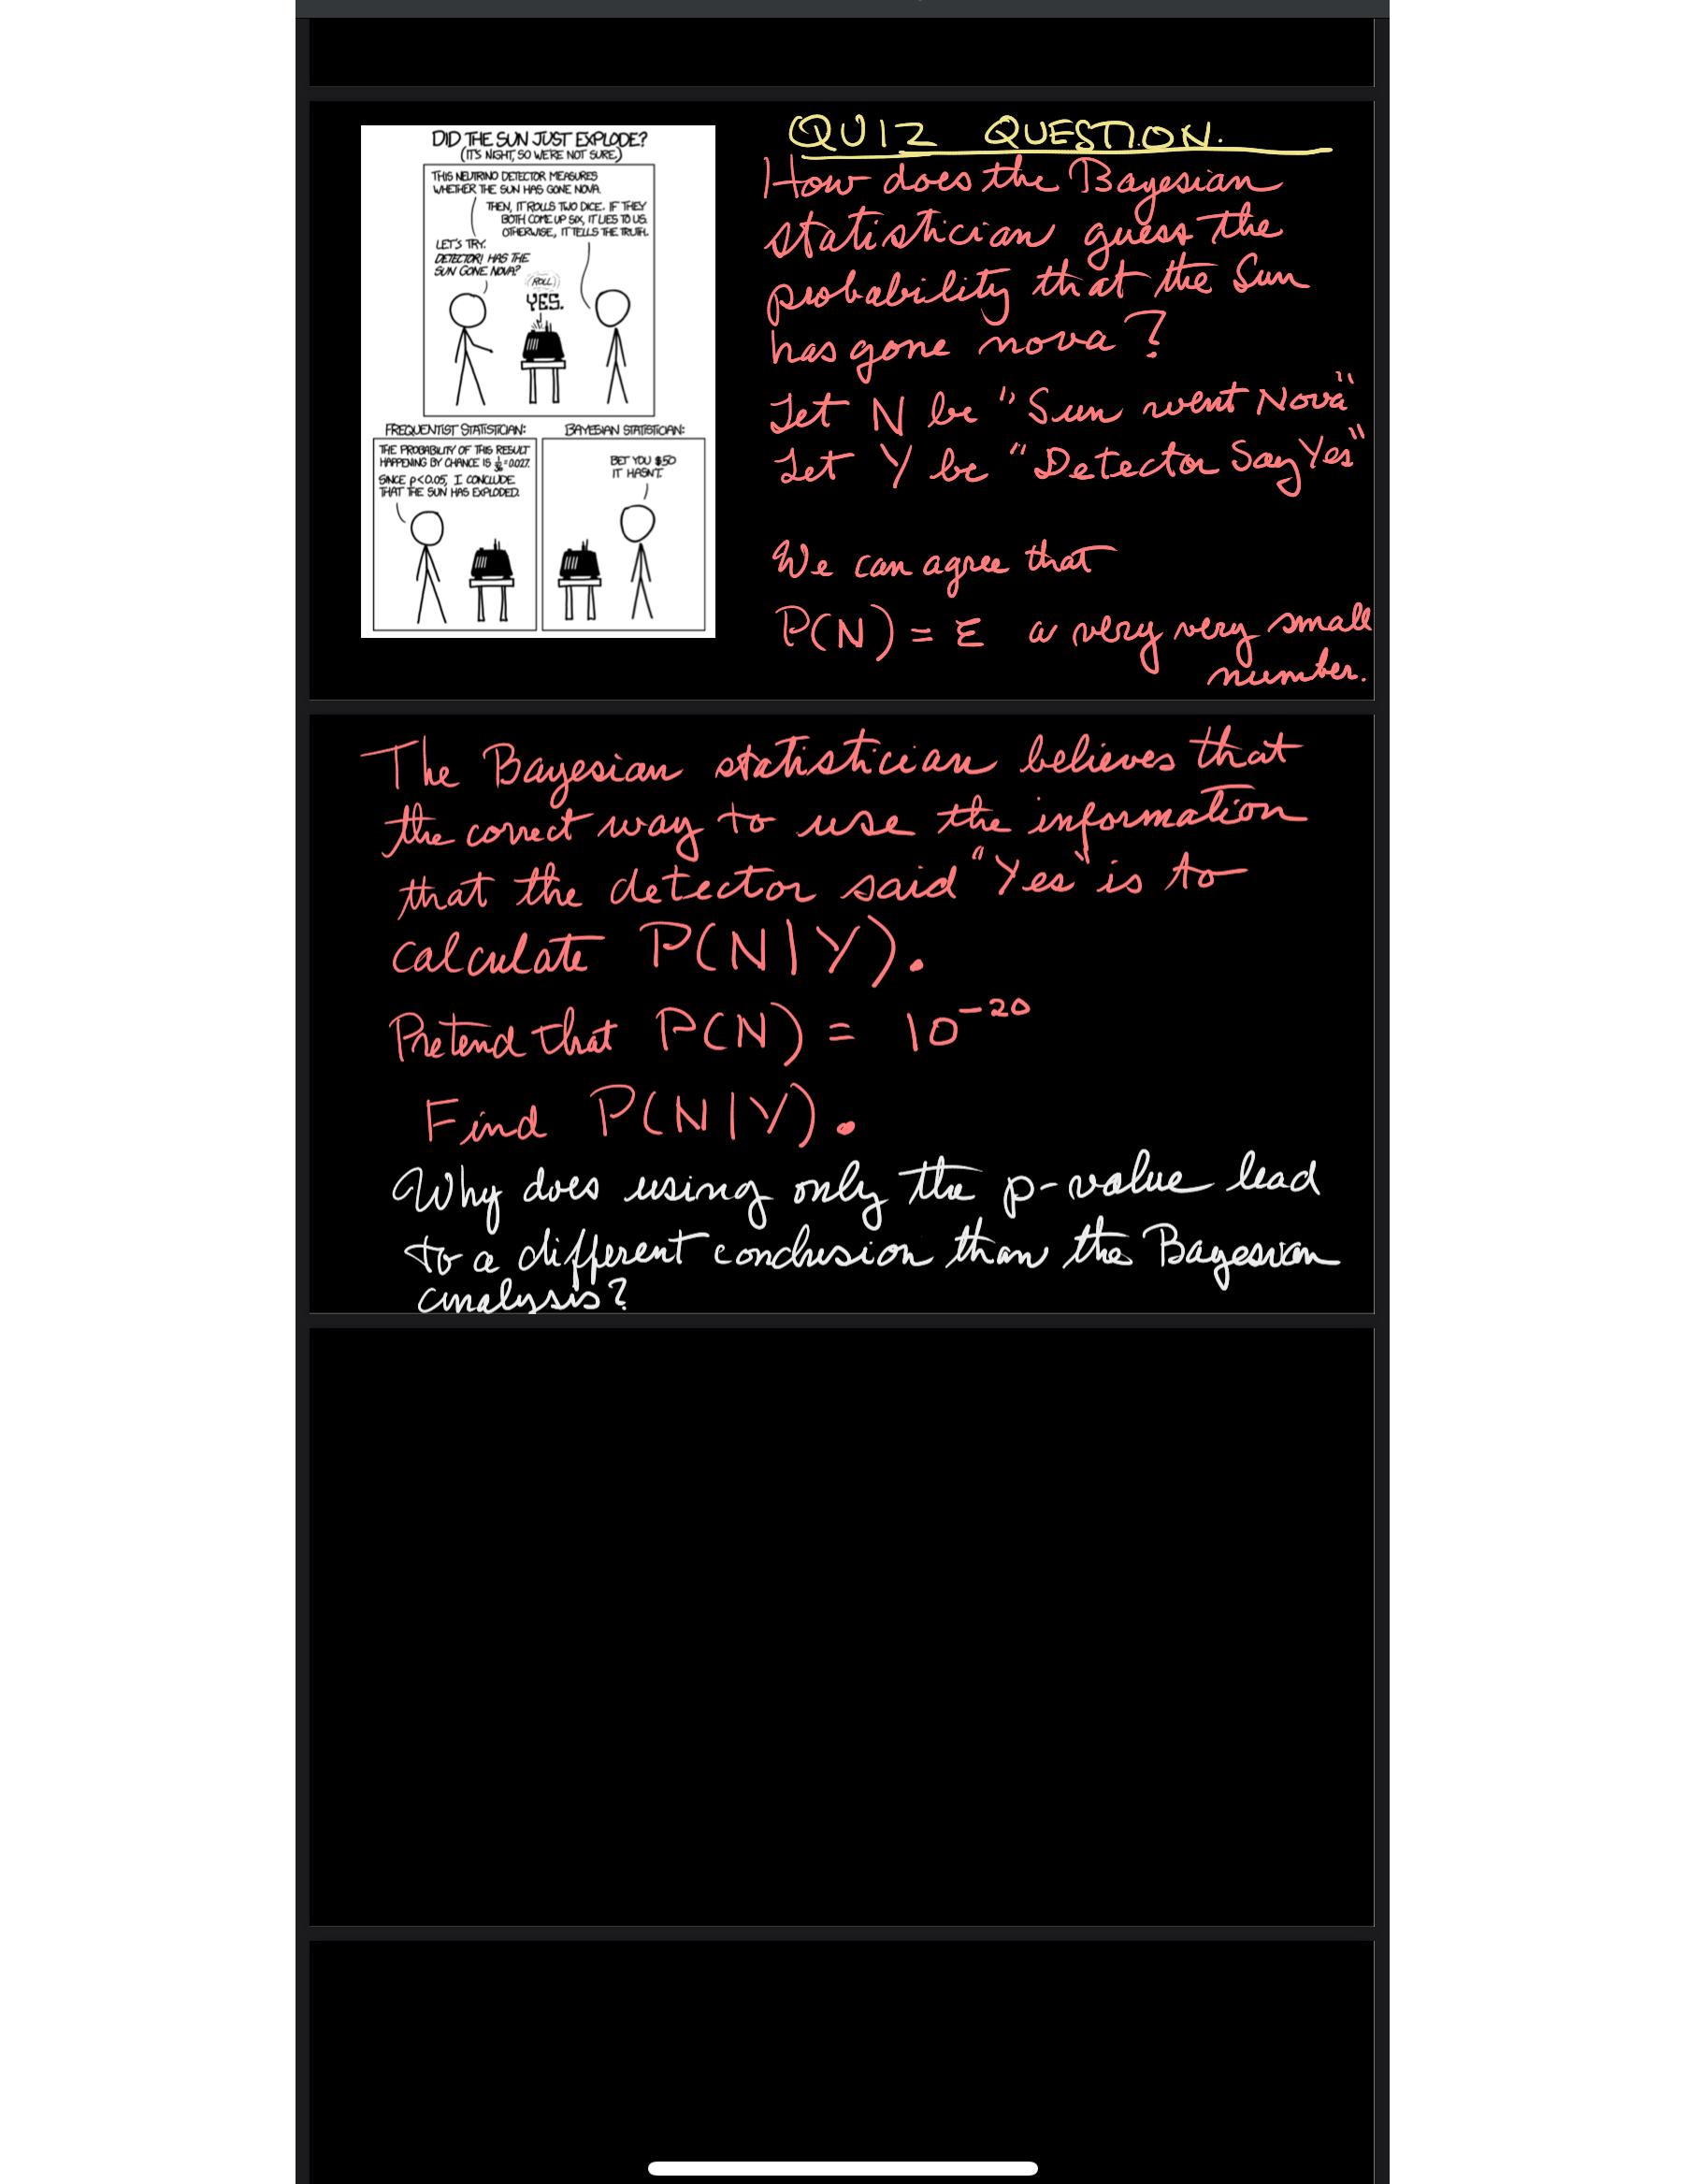 DID THE SUN JUST EXPLODE?
(IT'S NIGHT, SO WE'RE NOT SURE.)
THIS NEUTRINO DETECTOR MEASURES
WHETHER THE SUN HAS GONE NOVA.
THEN, IT ROLLS TWO DICE. IF THEY
BOTH COME UP SIX, IT LIES TO US.
OTHERWISE, IT TELLS THE TRUTH.
LET'S TRY.
DETECTOR! HAS THE
SUN GONE NOVA?
(ROLL)
YES.
FREQUENTIST STATISTICIAN:
THE PROBABILITY OF THIS RESULT
HAPPENING BY CHANCE IS 1/36=0.027.
SINCE p<0.05, I CONCLUDE
THAT THE SUN HAS EXPLODED.
BAYESIAN STATISTICIAN:
BET YOU $50
IT HASN'T.
QUIZ QUESTION.
How does the Bayesian
statistician guess the
probability that the Sun
has gone nova?
Let N be "Sun went Nova"
Let Y be "Detector Say Yes"
We can agree that
P(N) = ε a very very small
number.
The Bayesian statistician believes that
the correct way to use the information
that the detector said "Yes" is to
calculate P(N|Y).
Pretend that P(N) = 10⁻²⁰
Find P(N|Y).
Why does using only the p-value lead
to a different conclusion than the Bayesian
analysis?